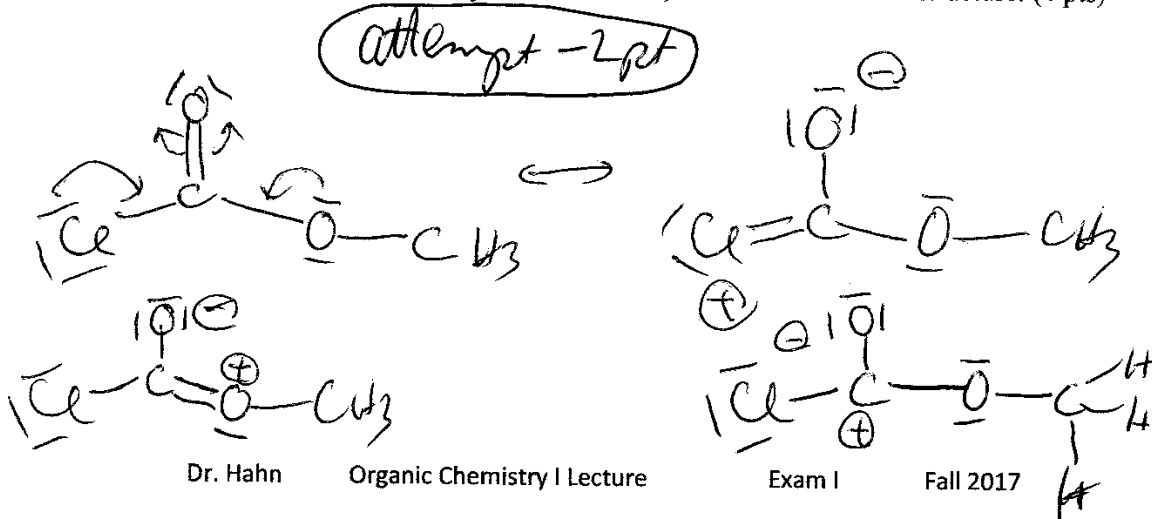 (4 pts)
attempt - 2 pt
O
C
Cl
O
CH3
⊖
O
Cl
C
O
CH3
⊕
O ⊖
C
⊕
Cl
O
CH3
⊖ O
Cl
C
⊕
O
C
H
H
H
Dr. Hahn Organic Chemistry I Lecture Exam I Fall 2017